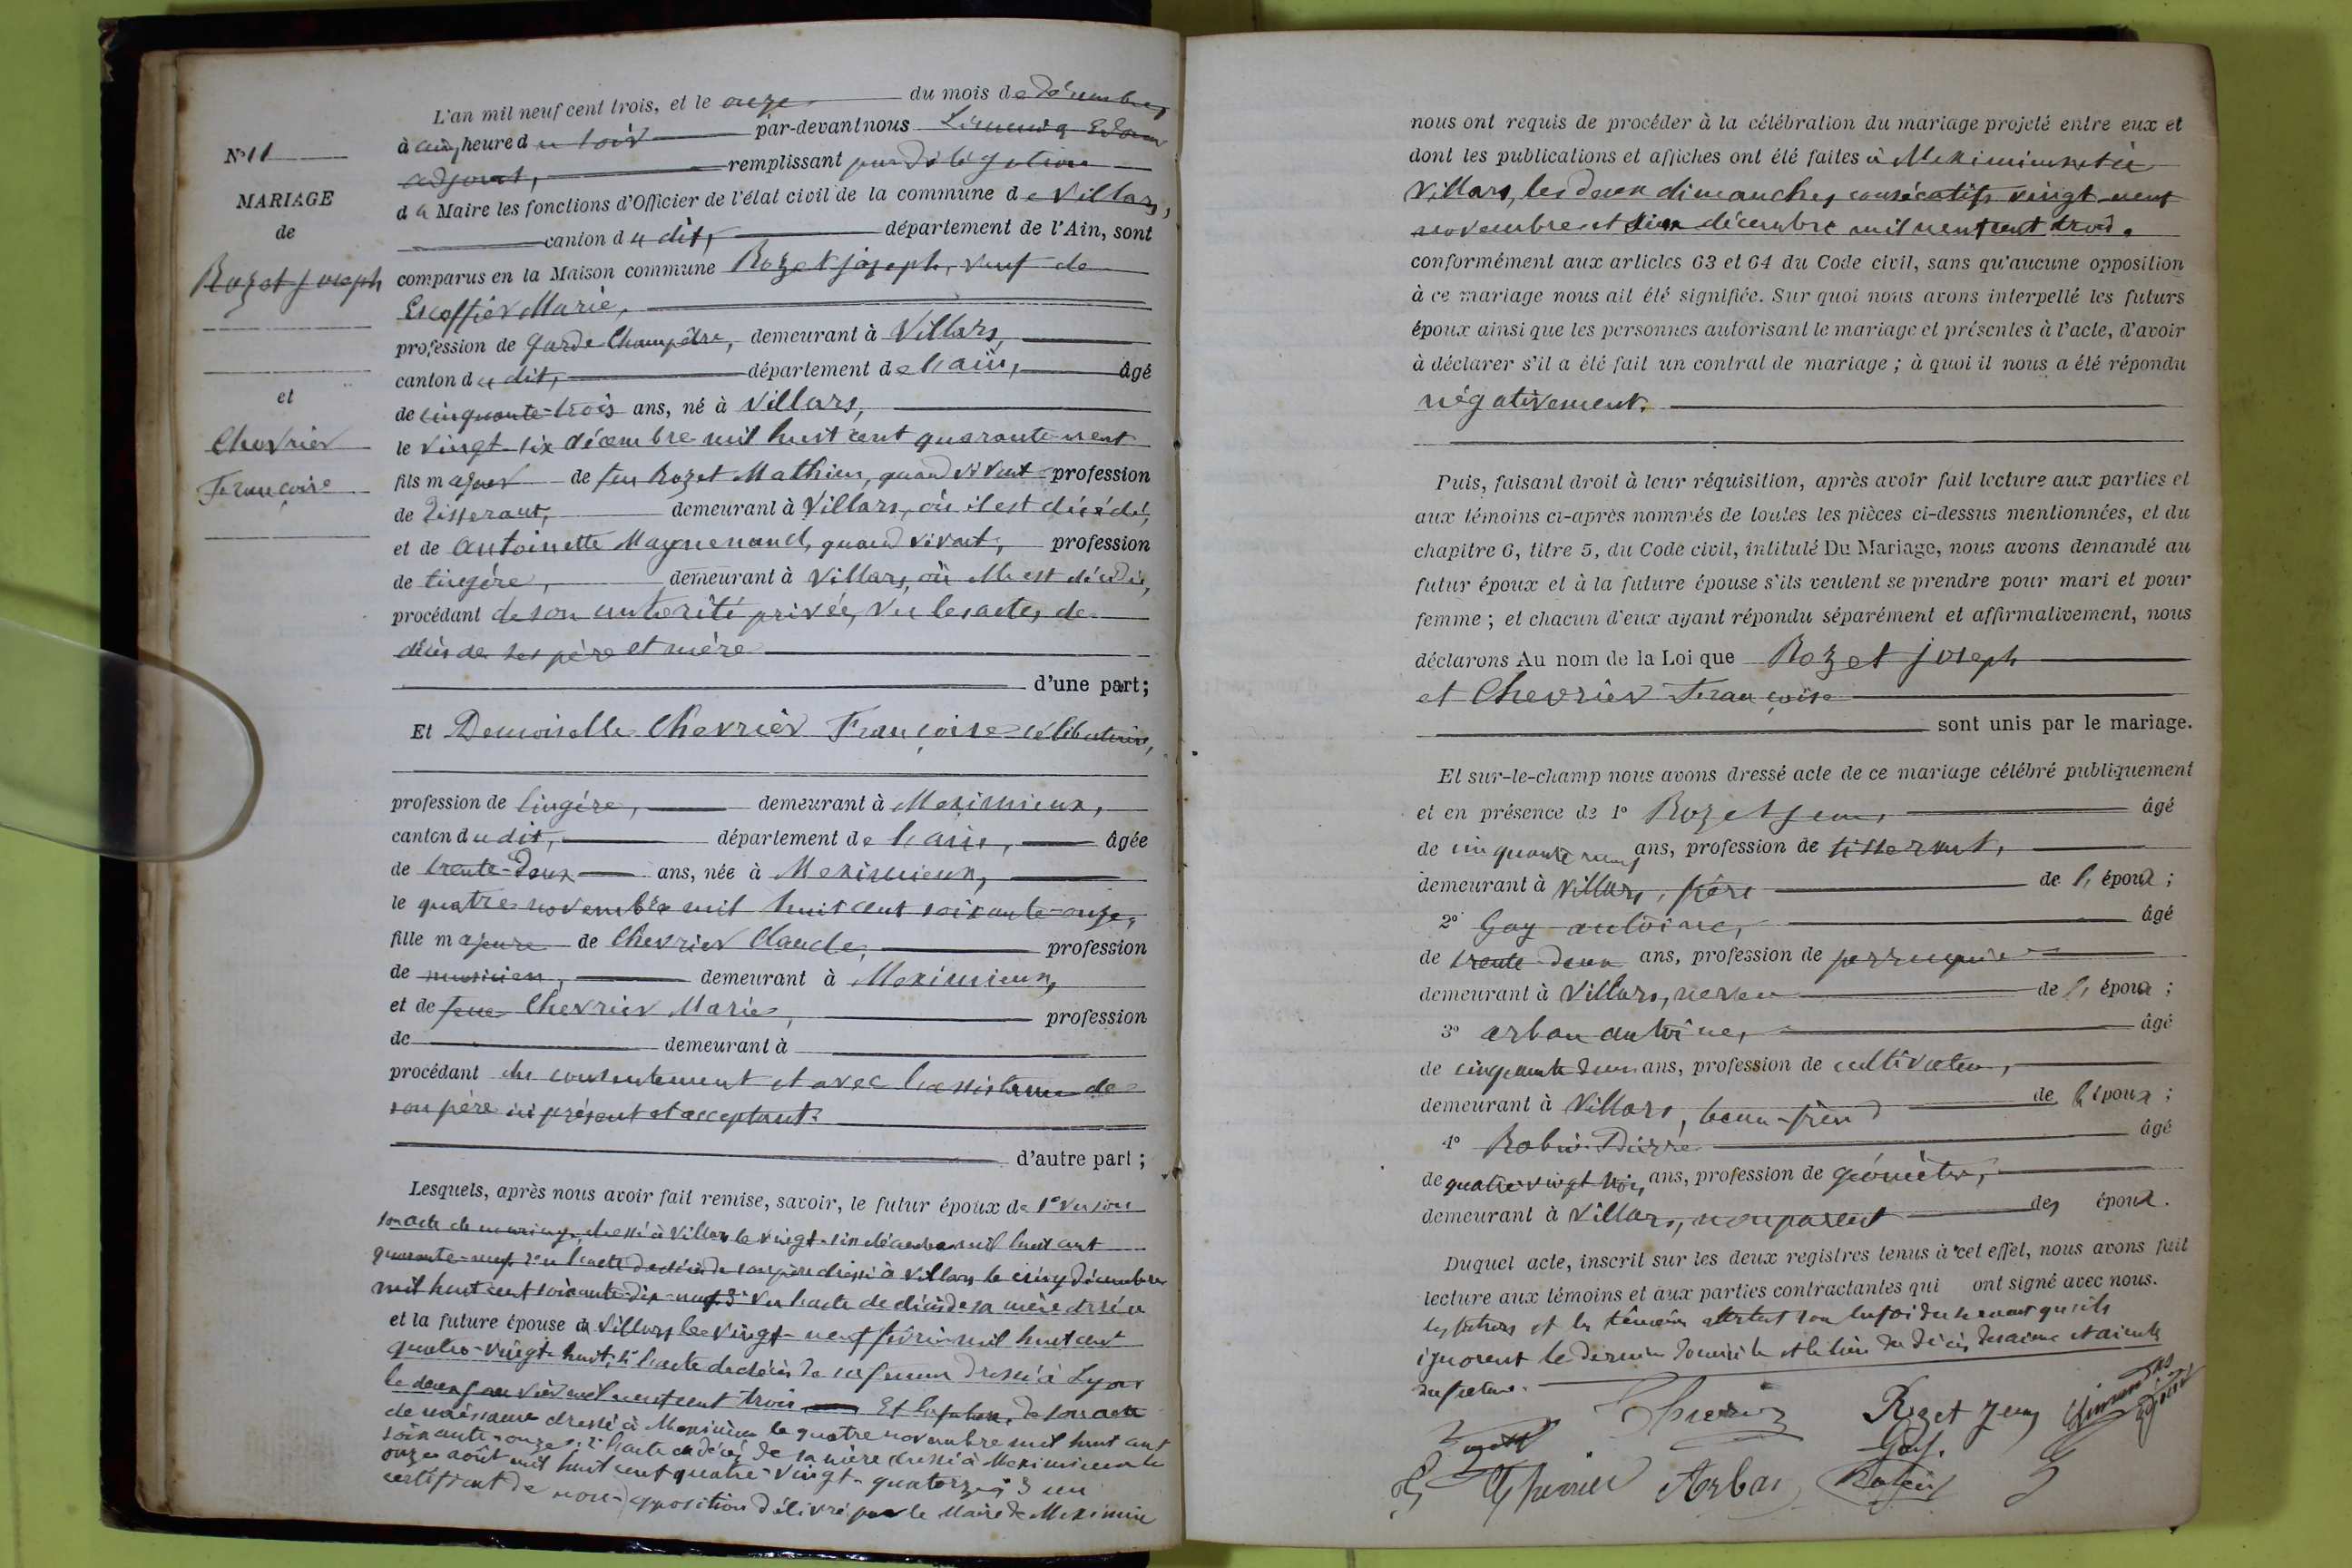 L'an mil neuf cent trois, et le onze du mois de décembre,
à cinq heure du soir par-devant nous
adjoint, remplissant par délégation
du Maire les fonctions d'Officier de l'état civil de la commune de Villars,
canton du dit, département de l'Ain, sont
comparus en la Maison commune Rozet joseph, veuf de
Escoffier Marie,
profession de garde Champêtre, demeurant à Villars,
canton du dit, département de l'ain, âgé
de cinquante-trois ans, né à Villars,
le vingt-six décembre mil huit cent quarante-neuf
fils majeur de feu Rozet Mathieu, quand vivait profession
de tisserant, demeurant à Villars, où il est décédé,
et de Antoinette Maynenaud, quand vivait, profession
de lingère, demeurant à Villars, où elle est décédée,
procédant de son autorité privée, Vu les actes de
décès de ses père et mère
d'une part;
N° 11
MARIAGE
de
Rozet joseph
et
Chevrier
Françoise
Et Demoiselle Chevrier Françoise célibataire,
profession de lingère, demeurant à Meximieux,
canton du dit, département de l'ain, âgée
de trente-deux ans, née à Meximieux,
le quatre novembre mil huit cent soixante-onze,
fille majeure de Chevrier Claude, profession
de musicien, demeurant à Meximieux,
et de feue Chevrier Marie, profession
de demeurant à
procédant du consentement et avec l'assistance de
son père ici présent et acceptant.
d'autre part;
Lesquels, après nous avoir fait remise, savoir, le futur époux de 1° Vu son
son acte de naissance, dressé à Villars le vingt-six décembre mil huit cent
quarante-neuf 2° Vu l'acte de décès de son père dressé à Villars le cinq décembre
mil huit cent soixante-dix-neuf 3° Vu l'acte de décès de sa mère dressé a
et la future épouse de Villars le vingt-neuf février mil huit cent
quatre-vingt-huit; 4° l'acte de décès de sa femme dressé à Lyon
le deux janvier mil neuf cent trois Et la future, de son acte
de naissance dressé à Meximieux le quatre novembre mil huit cent
soixante-onze; 2° l'acte de décès de sa mère dressé à Meximieux le
onze août mil huit cent quatre-vingt-quatorze; 3° un
certificat de non-opposition délivré par le Maire de Meximieu
nous ont requis de procéder à la célébration du mariage projeté entre eux et
dont les publications et affiches ont été faites à Meximieux et à
Villars, les deux dimanches consécutifs vingt-neuf
novembre et six décembre mil neuf cent trois.
conformément aux articles 63 et 64 du Code civil, sans qu'aucune opposition
à ce mariage nous ait été signifiée. Sur quoi nous avons interpellé les futurs
époux ainsi que les personnes autorisant le mariage et présentes à l'acte, d'avoir
à déclarer s'il a été fait un contrat de mariage; à quoi il nous a été répondu
négativement.
Puis, faisant droit à leur réquisition, après avoir fait lecture aux parties et
aux témoins ci-après nommés de toutes les pièces ci-dessus mentionnées, et du
chapitre 6, titre 5, du Code civil, intitulé Du Mariage, nous avons demandé au
futur époux et à la future épouse s'ils veulent se prendre pour mari et pour
femme; et chacun d'eux ayant répondu séparément et affirmativement, nous
déclarons Au nom de la Loi que Rozet joseph
et Chevrier Françoise
sont unis par le mariage.
Et sur-le-champ nous avons dressé acte de ce mariage célébré publiquement
et en présence de 1° Rozet Jean, âgé
de cinquante neuf ans, profession de tisserant,
demeurant à Villars, frère de l'époux;
2° Gay antoine, âgé
de trente deux ans, profession de perruquier
demeurant à Villars, neveu de l'époux;
3° arban antoine, âgé
de cinquante deux ans, profession de cultivateur,
demeurant à Villars, beau-frère de l'époux;
4° Robin Pierre âgé
de quatre vingt trois ans, profession de géomètre,
demeurant à Villars, non parent des époux.
Duquel acte, inscrit sur les deux registres tenus à cet effet, nous avons fait
lecture aux témoins et aux parties contractantes qui ont signé avec nous.
les futurs et les témoins attestent sous la foi du serment qu'ils
ignorent le dernier domicile et le lieu du décès des aïeux et aïeules
du futur.
Chevrier Rozet Jean
Rozet Gay.
Chevrier Arban Robin